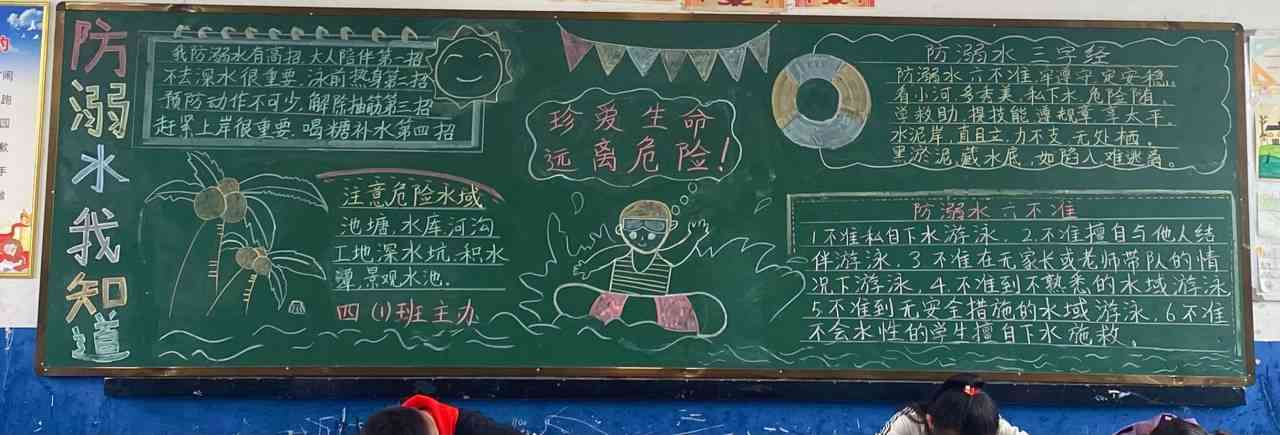 防溺水我知道
我防溺水有高招,大人陪伴第一招
不去深水很重要,泳前热身第二招
预防动作不可少,解除抽筋第三招
赶紧上岸很重要,喝糖补水第四招
注意危险水域
池塘,水库河沟
工地深水坑,积水
潭,景观水池.
四(1)班主办
珍爱生命
远离危险!
防溺水三字经
防溺水六不准,牢遵守定安稳,
看小河,多秀美,私下水,危险随,
学救助,提技能,遵规章,享太平,
水泥岸,直且立,力不支,无处栖,
黑淤泥,藏水底,如陷入难逃离。
防溺水六不准
1不准私自下水游泳,2.不准擅自与他人结
伴游泳,3不准在无家长或老师带队的情
况下游泳,4.不准到不熟悉的水域游泳
5不准到无安全措施的水域游泳,6不准
不会水性的学生擅自下水施救,